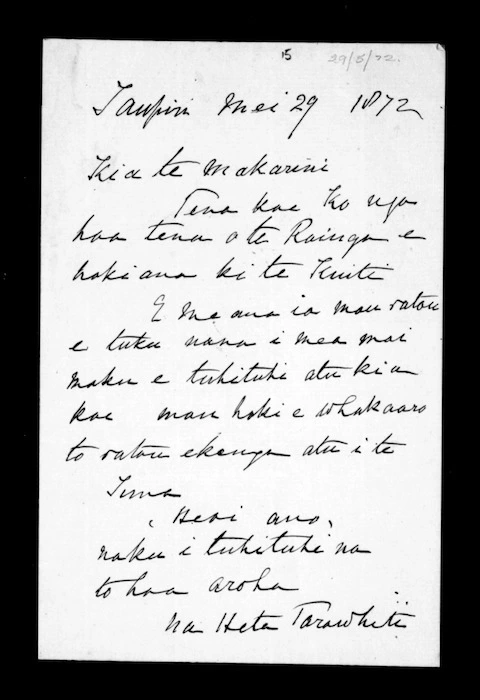 15
29/5/72.
Taupiri Mei 29 1872
Kia te Makarini
Tena koe Ko nga
hoa tena o te Rainga e
hoki ana ki te Kuiti
E mea ana ia mau ratou
e tuku nana i mea mai
maku e tuhituhi atu kia
koe mau hoki e whakaaro
to ratou ekenga atu i te
Tima
Heoi ano,
naku i tuhituhi na
to hoa aroha
na Heta Tarawhiti